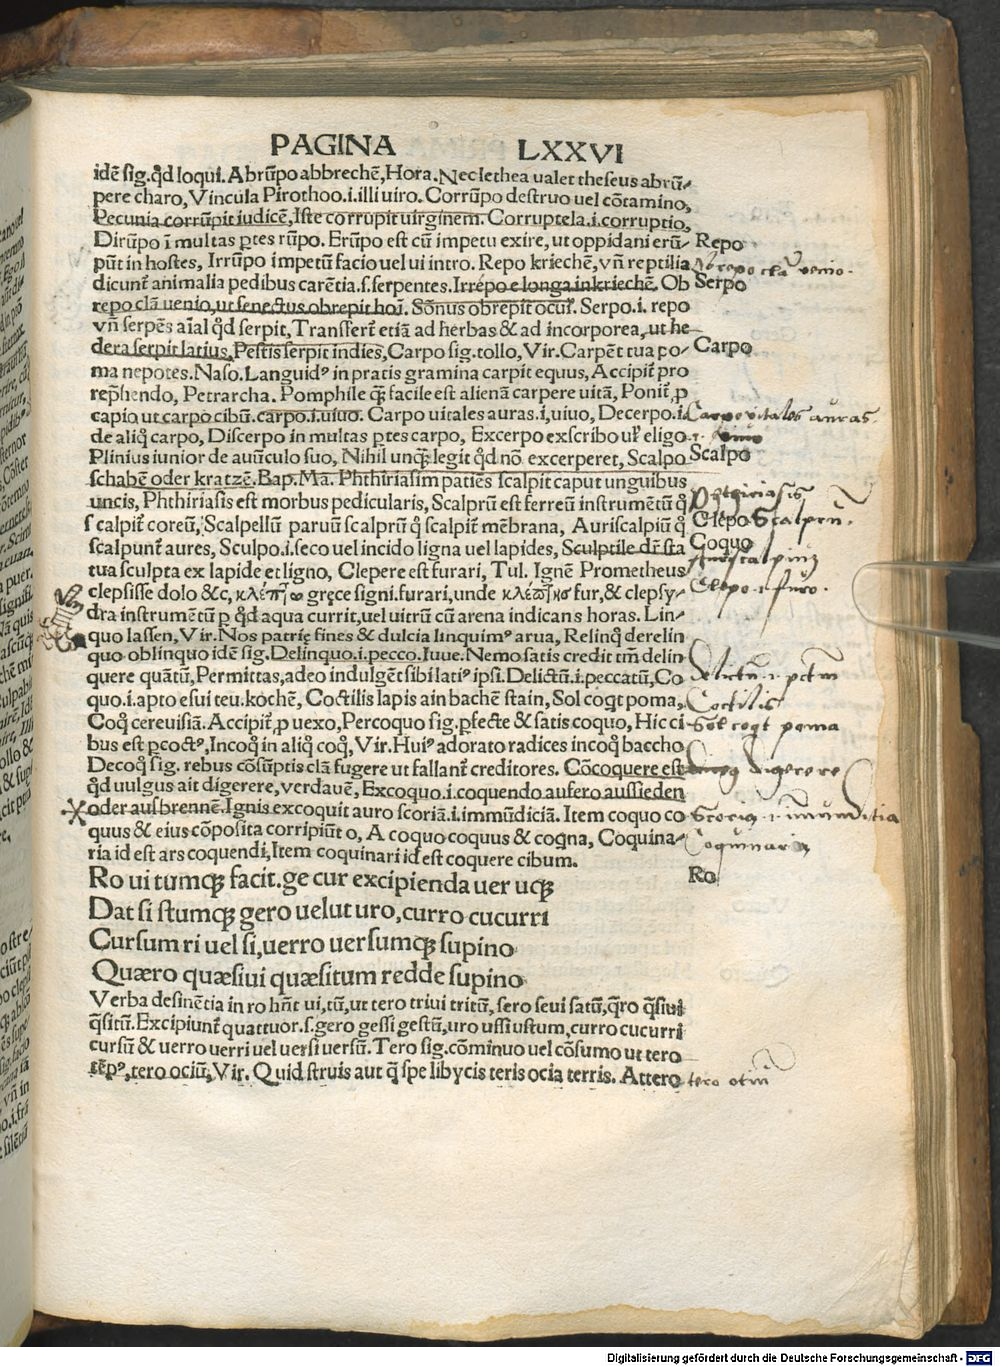 PAGINA LXXVI
idē sig. qd loqui. Abrūpo abbrechē, Hora. Nec lethea ualet theseus abrū-
pere charo, Vincula Pirothoo.i.illi uiro. Corrūpo destruo uel cōtamino,
Pecunia corrūpit iudicē, Iste corrupit uirginem. Corruptela.i.corruptio,
Dirūpo ī multas ptes rūpo. Erūpo est cū impetu exire, ut oppidani erū- Repo
pūt in hostes, Irrūpo impetū facio uel ui intro. Repo kriechē, vñ reptilia Obrepo clā venio.
dicunt animalia pedibus carētia.s.serpentes. Irrépo e longa inkriechē, Ob Serpo
repo clā uenio, ut senectus obrepit hoī. Sōnus obrepit ocul. Serpo.i. repo
vñ serpēs aīal qd serpit, Transfert etiā ad herbas & ad incorporea, ut he
dera serpit latius, Pestis serpit indies, Carpo sig. tollo, Vir. Carpēt tua po- Carpo
ma nepotes. Naso. Languidꝰ in pratis gramina carpit equus, Accipit pro
rephendo, Petrarcha. Pomphile q̃ facile est alienā carpere uitā, Ponit, p
capio ut carpo cibū. carpo.i.uiuo. Carpo uitales auras.i,uiuo, Decerpo.i. Carpo vitales auras.
de aliq carpo, Discerpo in multas ptes carpo, Excerpo exscribo ul eligo .i. vivo
Plinius iunior de auūculo suo, Nihil unq̃ legit qd nō excerperet, Scalpo Scalpo
schabē oder kratzē. Bap. Ma. Phthiriasim patiēs scalpit caput unguibus
uncis, Phthiriasis est morbus pedicularis, Scalprū est ferreū instrumētū q
scalpit coreū, Scalpellū paruū scalprū q scalpit mēbrana, Auriscalpiū q Clepo Scalprū.
scalpunt aures, Sculpo.i.seco uel incido ligna uel lapides, Sculptile dr sta Coquo
tua sculpta ex lapide et ligno, Clepere est furari, Tul. Ignē Prometheus
clepsisse dolo &c, κλέπτω gręce signi. furari, unde κλέπτης fur, & clepsy- Clepo .i. furo.
dra instrumētū p qd aqua currit, uel uitrū cū arena indicans horas. Lin-
quo lassen, Vir. Nos patrię fines & dulcia linquimꝰ arua, Relinq derelin
quo oblinquo idē sig. Delinquo.i.pecco. Iuue. Nemo satis credit tm delin
quere quātū, Permittas, adeo indulgēt sibi latiꝰ ipsi. Delictū.i.peccatū, Co Delictū .i. pctm
quo.i.apto esui teu. kochē, Coctilis lapis ain bachē stain, Sol coqt poma, Coctilis
Coq cereuisiā. Accipit, p uexo, Percoquo sig. pfecte & satis coquo, Hic ci Sol coqt poma
bus est pcoctꝰ, Incoq in aliq coq, Vir. Huiꝰ adorato radices incoq baccho
Decoq sig. rebus cōsūptis clā fugere ut fallant creditores. Cōcoquere est digerere
qd uulgus ait digerere, verdauē, Excoquo.i.coquendo aufero aussieden
oder ausbrennē. Ignis excoquit auro scoriā.i.immūdiciā. Item coquo co Scoria .i. īmunditia
quus & eius cōposita corripiūt o, A coquo coquus & coqna, Coquina- Coquinaria
ria id est ars coquendi, Item coquinari id est coquere cibum.
Ro ui tumq̃ facit. ge cur excipienda uer uq̃ Ro
Dat si stumq̃ gero uelut uro, curro cucurri
Cursum ri uel si, uerro uersumq̃ supino
Quæro quæsiui quæsitum redde supino
Verba desinētia in ro hñt ui, tū, ut tero triui tritū, sero seui satū, qro qsiui
qsitū. Excipiunt quattuor.s. gero gessi gestū, uro ussi ustum, curro cucurri
cursū & uerro uerri uel uersi uersū. Tero sig. cōminuo uel cōsumo ut tero
tēpꝰ, tero ociū, Vir. Quid struis aut q spe libycis teris ocia terris. Attero tero otiū